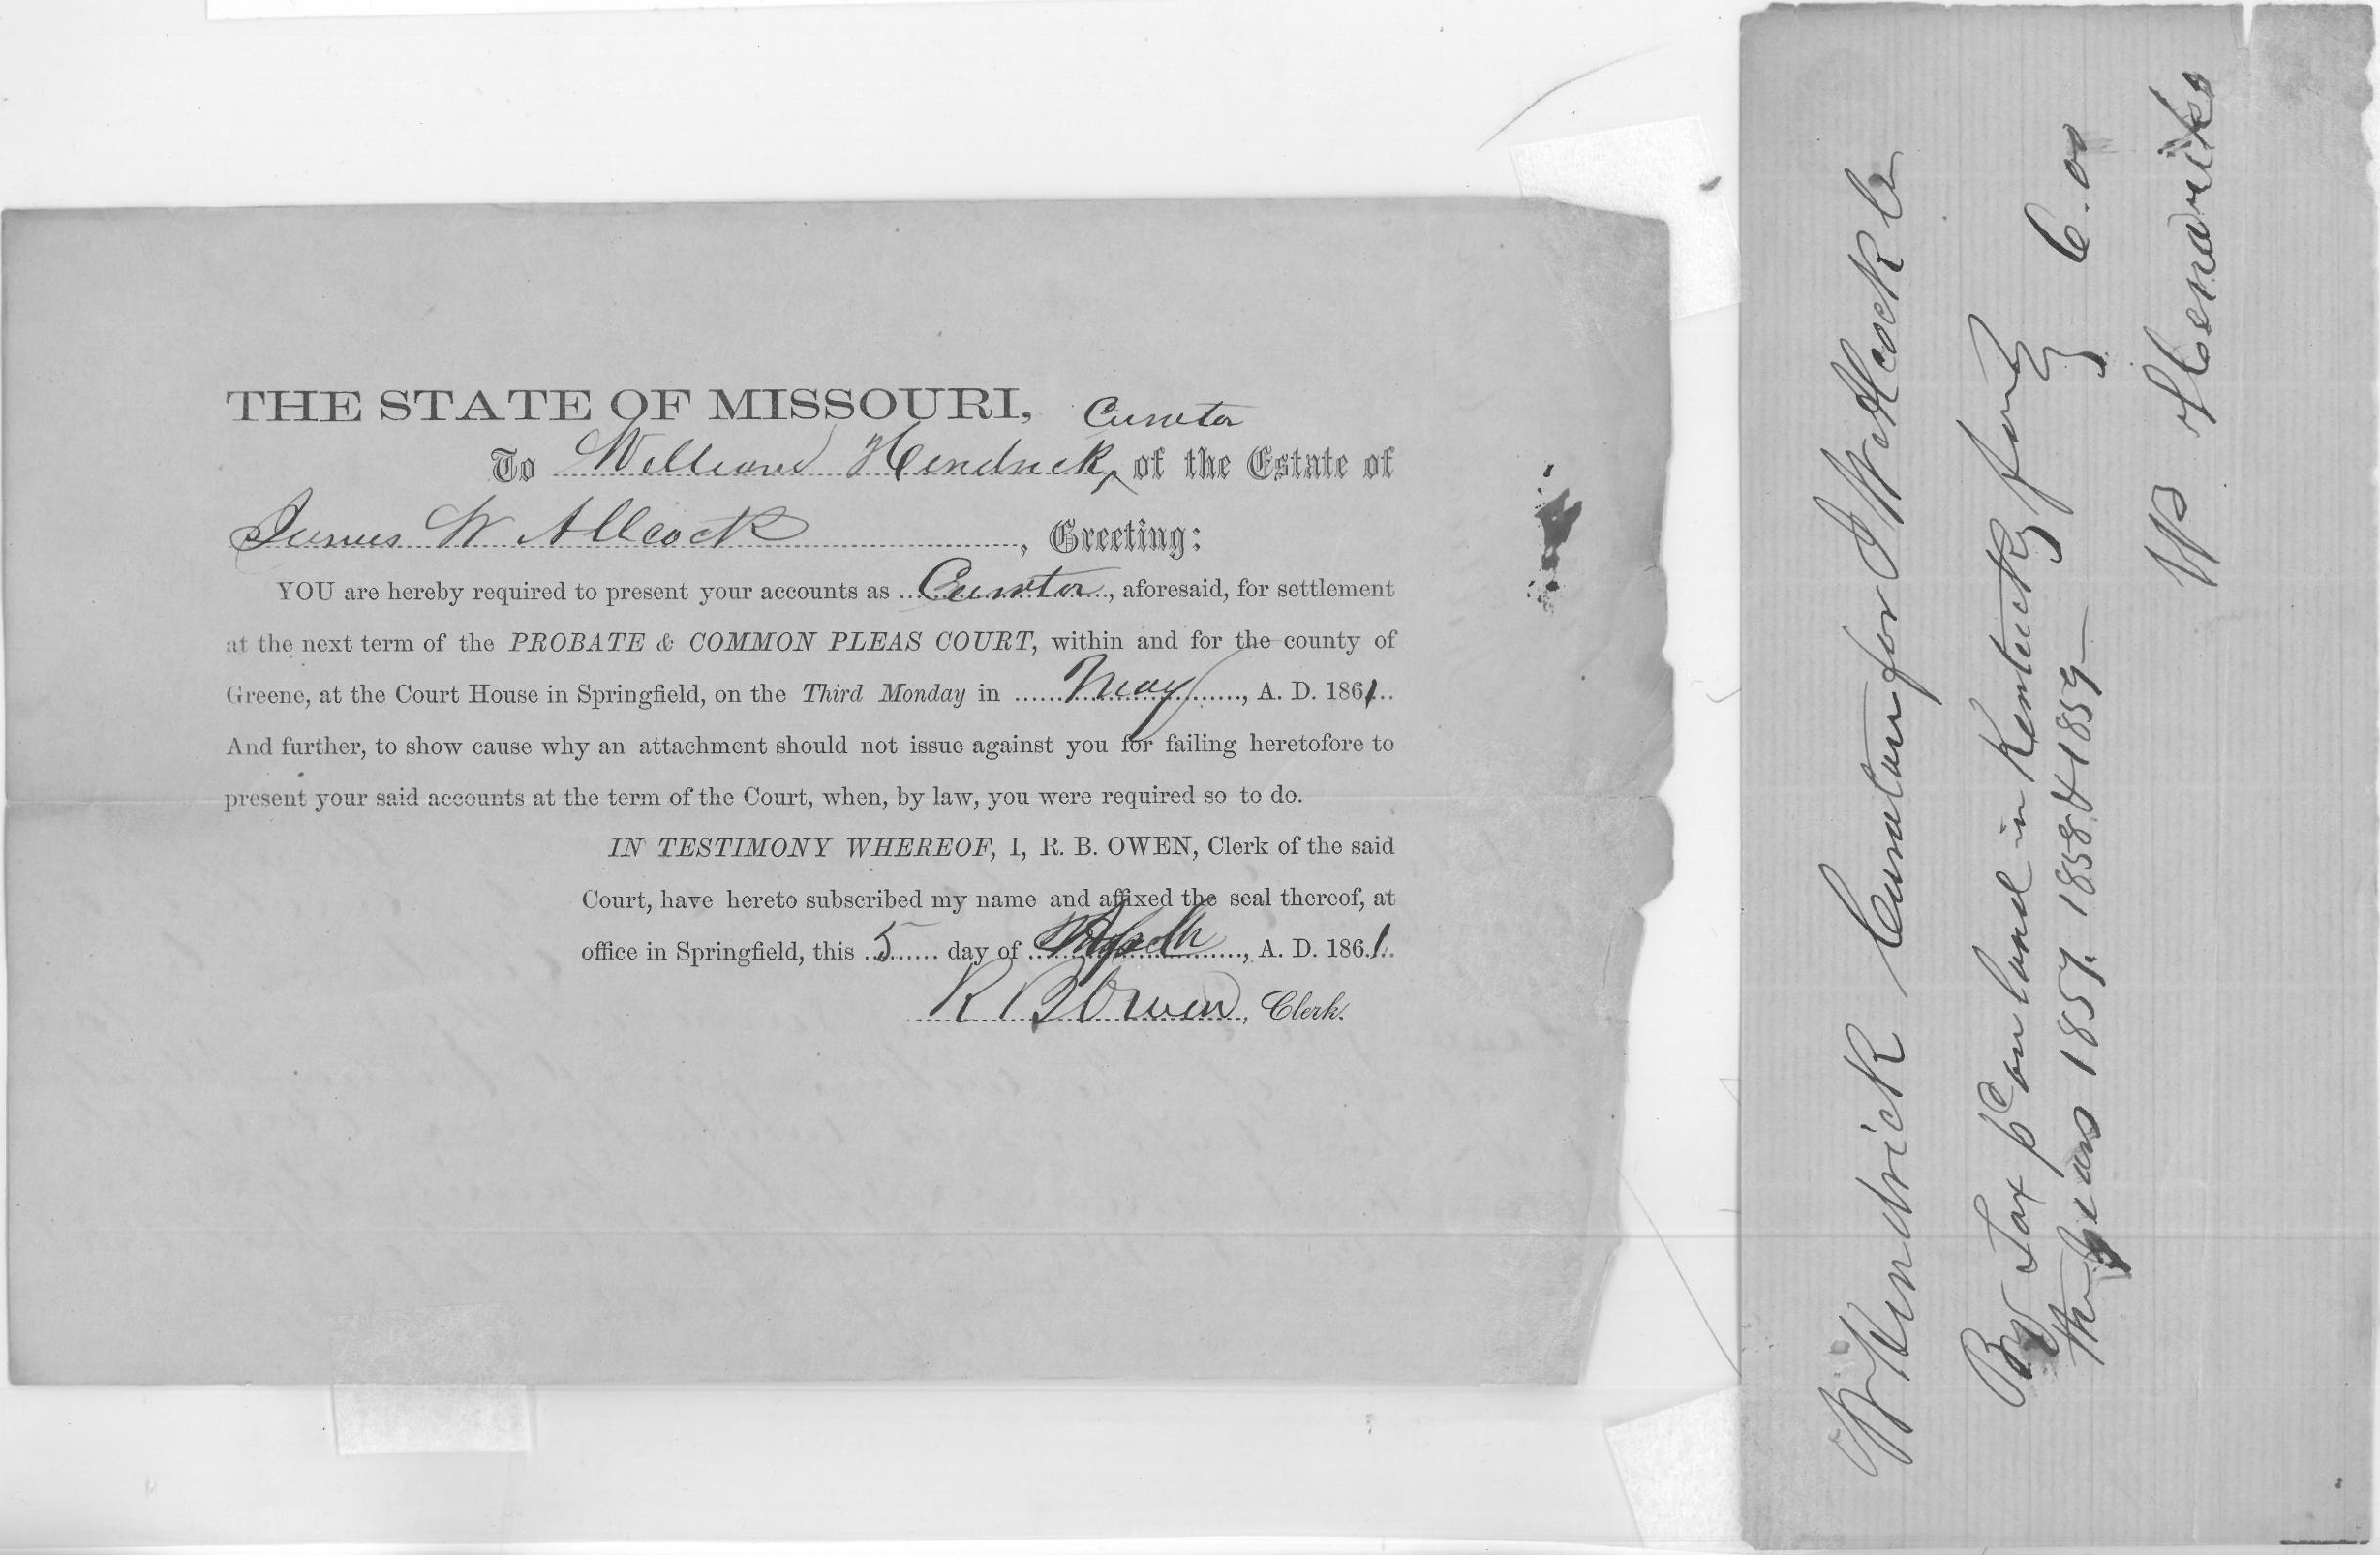 THE STATE OF MISSOURI, Curator
To William Hendrick, of the Estate of
James W Allcock, Greeting:
YOU are hereby required to present your accounts as Curator, aforesaid, for settlement
at the next term of the PROBATE & COMMON PLEAS COURT, within and for the county of
Greene, at the Court House in Springfield, on the Third Monday in May, A. D. 1861.
And further, to show cause why an attachment should not issue against you for failing heretofore to
present your said accounts at the term of the Court, when, by law, you were required so to do.
IN TESTIMONY WHEREOF, I, R. B. OWEN, Clerk of the said
Court, have hereto subscribed my name and affixed the seal thereof, at
office in Springfield, this 5 day of, A. D. 1861.
R B Owen, Clerk.
W Kendrick Curator for J W Allcock
By Tax on land in Kentucky for
the years 1857. 1858 & 1859 — 6.00
W Kendricks